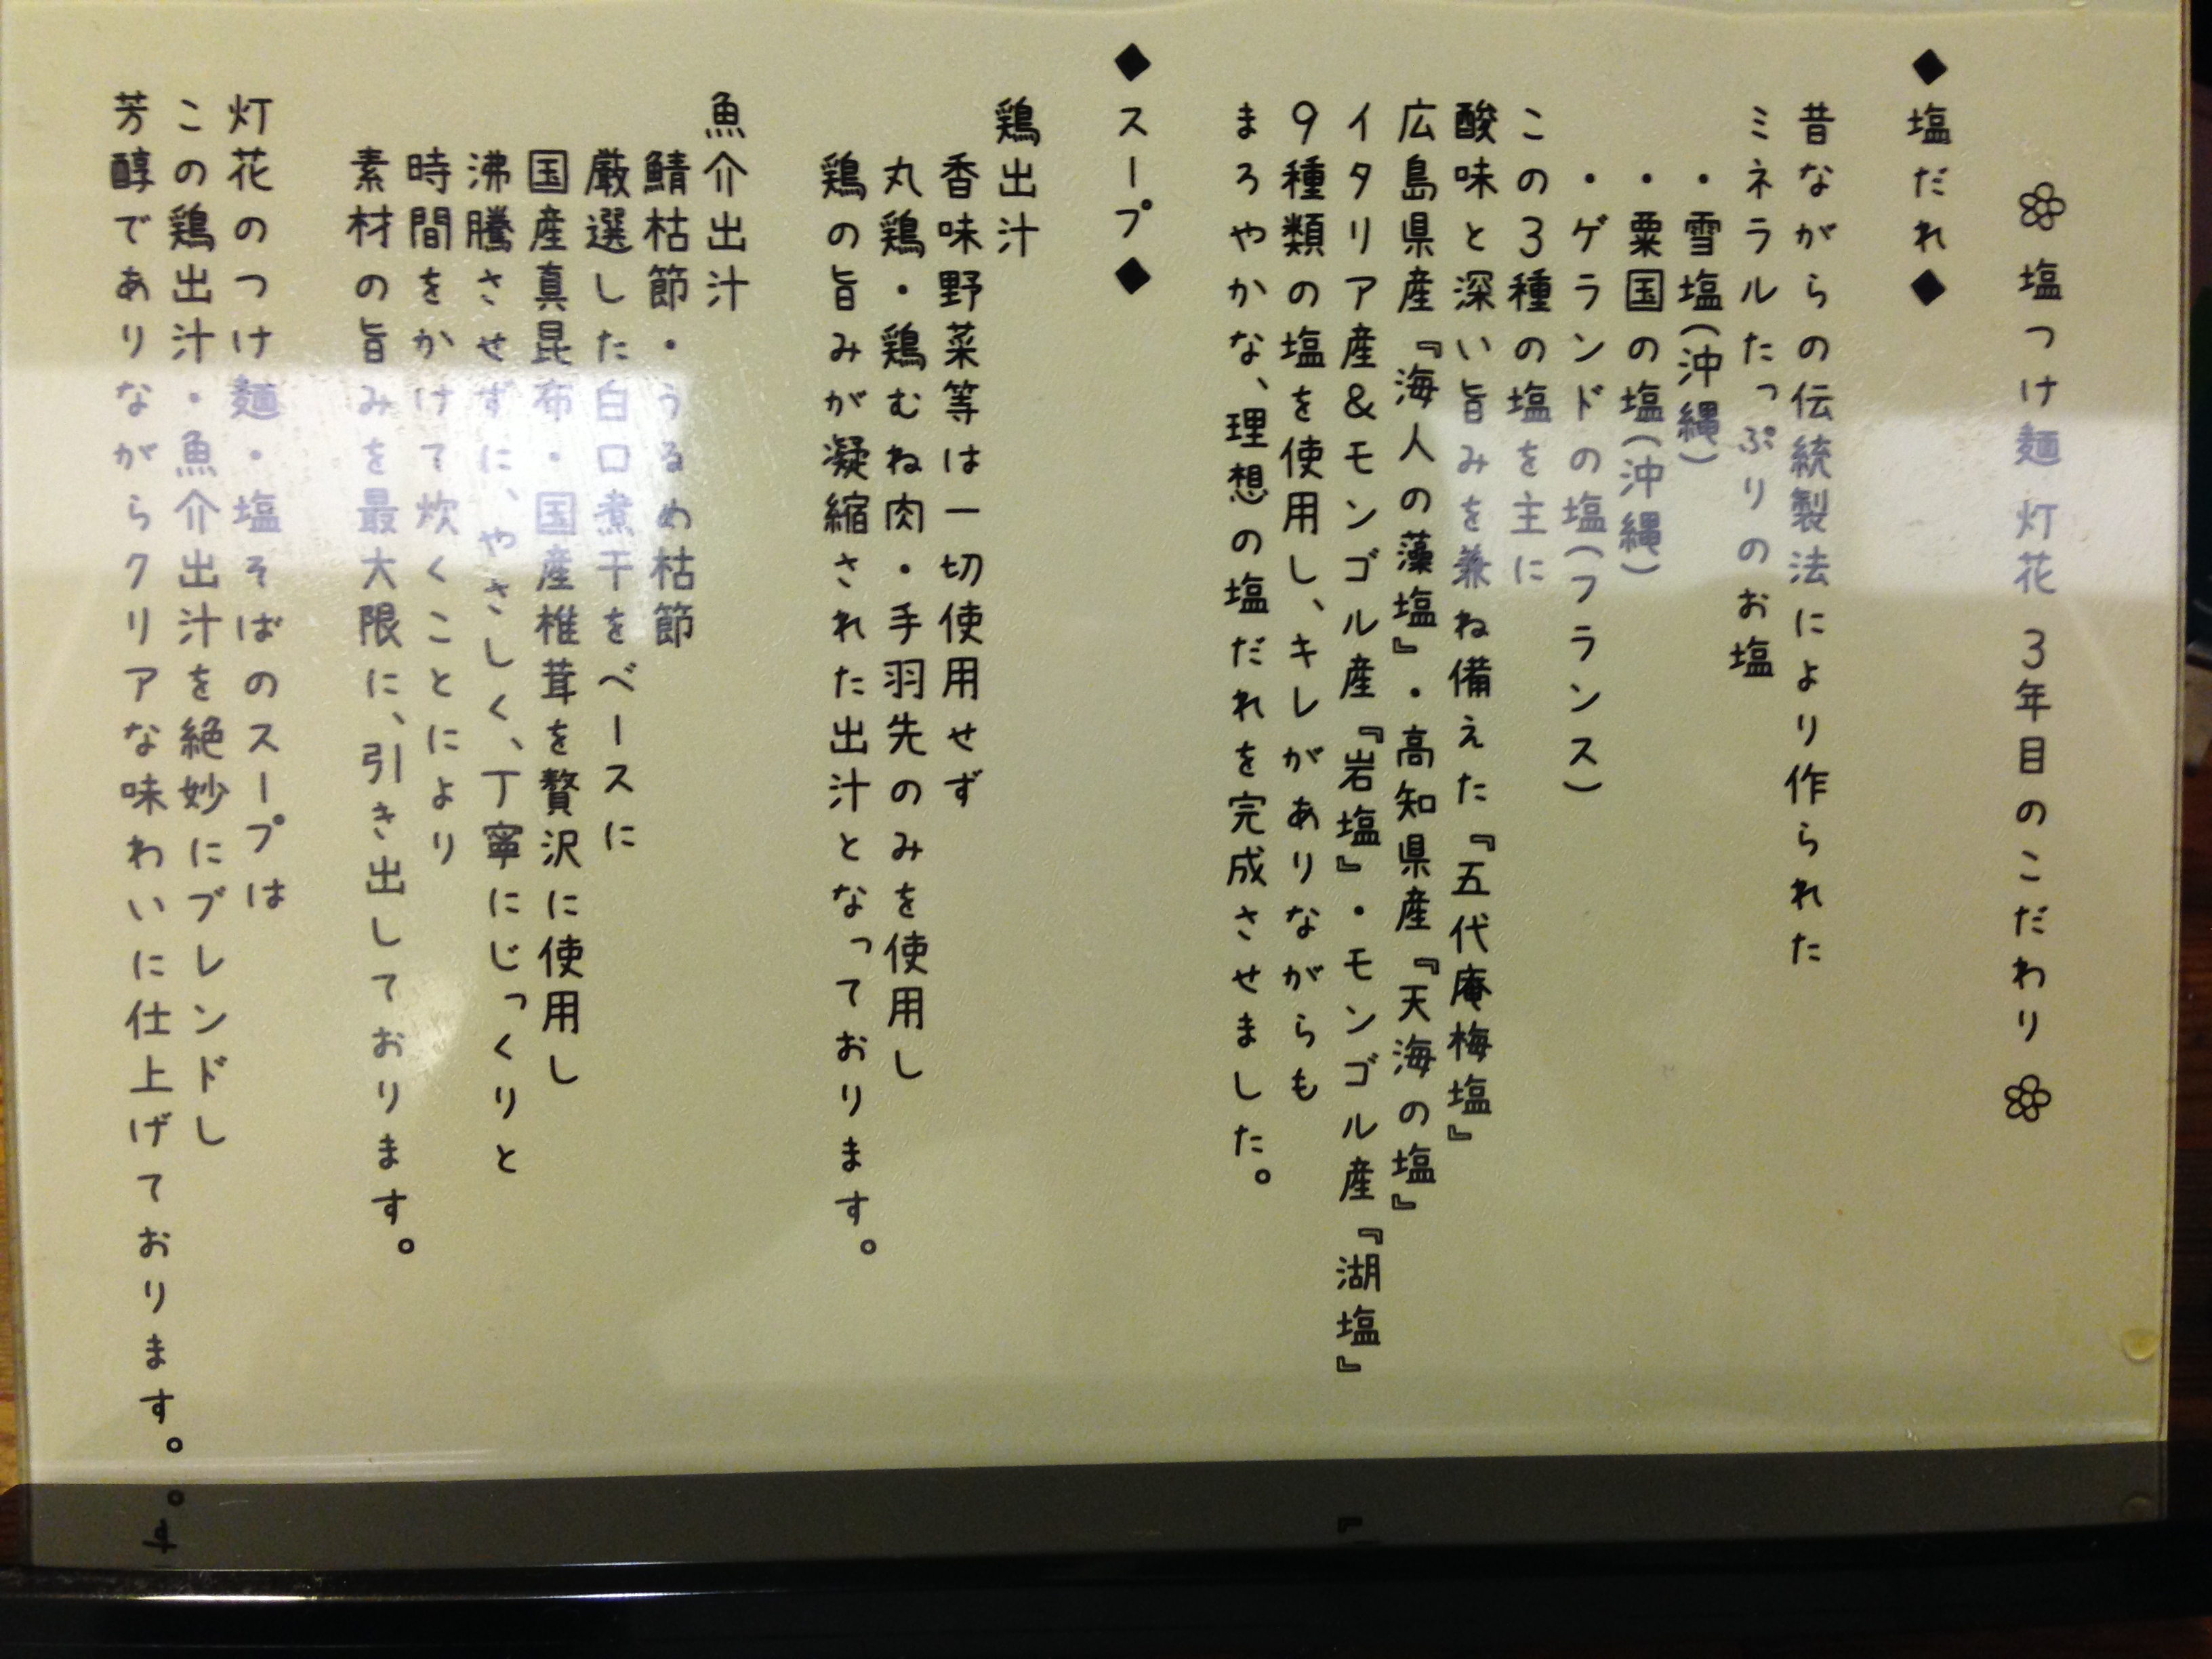 塩つけ麺 灯花 3年目のこだわり
◆塩だれ◆
昔ながらの伝統製法により作られた
ミネラルたっぷりのお塩
・雪塩(沖縄)
・粟国の塩(沖縄)
・ゲランドの塩(フランス)
この3種の塩を主に
酸味と深い旨みを兼ね備えた『五代庵梅塩』
広島県産『海人の藻塩』・高知県産『天海の塩』
イタリア産&モンゴル産『岩塩』・モンゴル産『湖塩』
9種類の塩を使用し、キレがありながらも
まろやかな、理想の塩だれを完成させました。
◆スープ◆
鶏出汁
香味野菜等は一切使用せず
丸鶏・鶏むね肉・手羽先のみを使用し
鶏の旨みが凝縮された出汁となっております。
魚介出汁
鯖枯節・うるめ枯節
厳選した白口煮干をベースに
国産真昆布・国産椎茸を贅沢に使用し
沸騰させずに、やさしく、丁寧にじっくりと
時間をかけて炊くことにより
素材の旨みを最大限に、引き出しております。
灯花のつけ麺・塩そばのスープは
この鶏出汁・魚介出汁を絶妙にブレンドし
芳醇でありながらクリアな味わいに仕上げております。